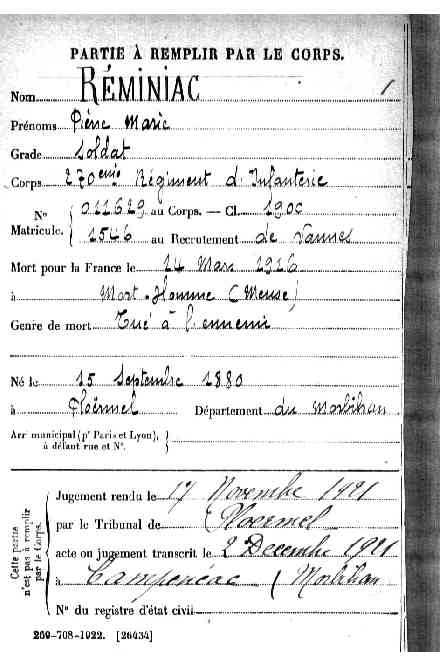 PARTIE À REMPLIR PAR LE CORPS.
Nom RÉMINIAC 1
Prénoms Pierre Marie
Grade Soldat
Corps 270eme Régiment d'Infanterie
N° Matricule. { 011629 au Corps. — Cl. 1900
1546 au Recrutement de Vannes
Mort pour la France le 14 Mars 1916
à Mort-Homme (Meuse)
Genre de mort Tué à l'ennemi
Né le 15 Septembre 1880
à Ploërmel Département du Morbihan
Arr municipal (pr Paris et Lyon), à défaut rue et N°. }
Cette partie n'est pas à remplir par le Corps.
Jugement rendu le 17 Novembre 1921
par le Tribunal de Ploermel
acte ou jugement transcrit le 2 Decembre 1921
à Campénéac (Morbihan
N° du registre d'état civil
269-708-1922. [26434]